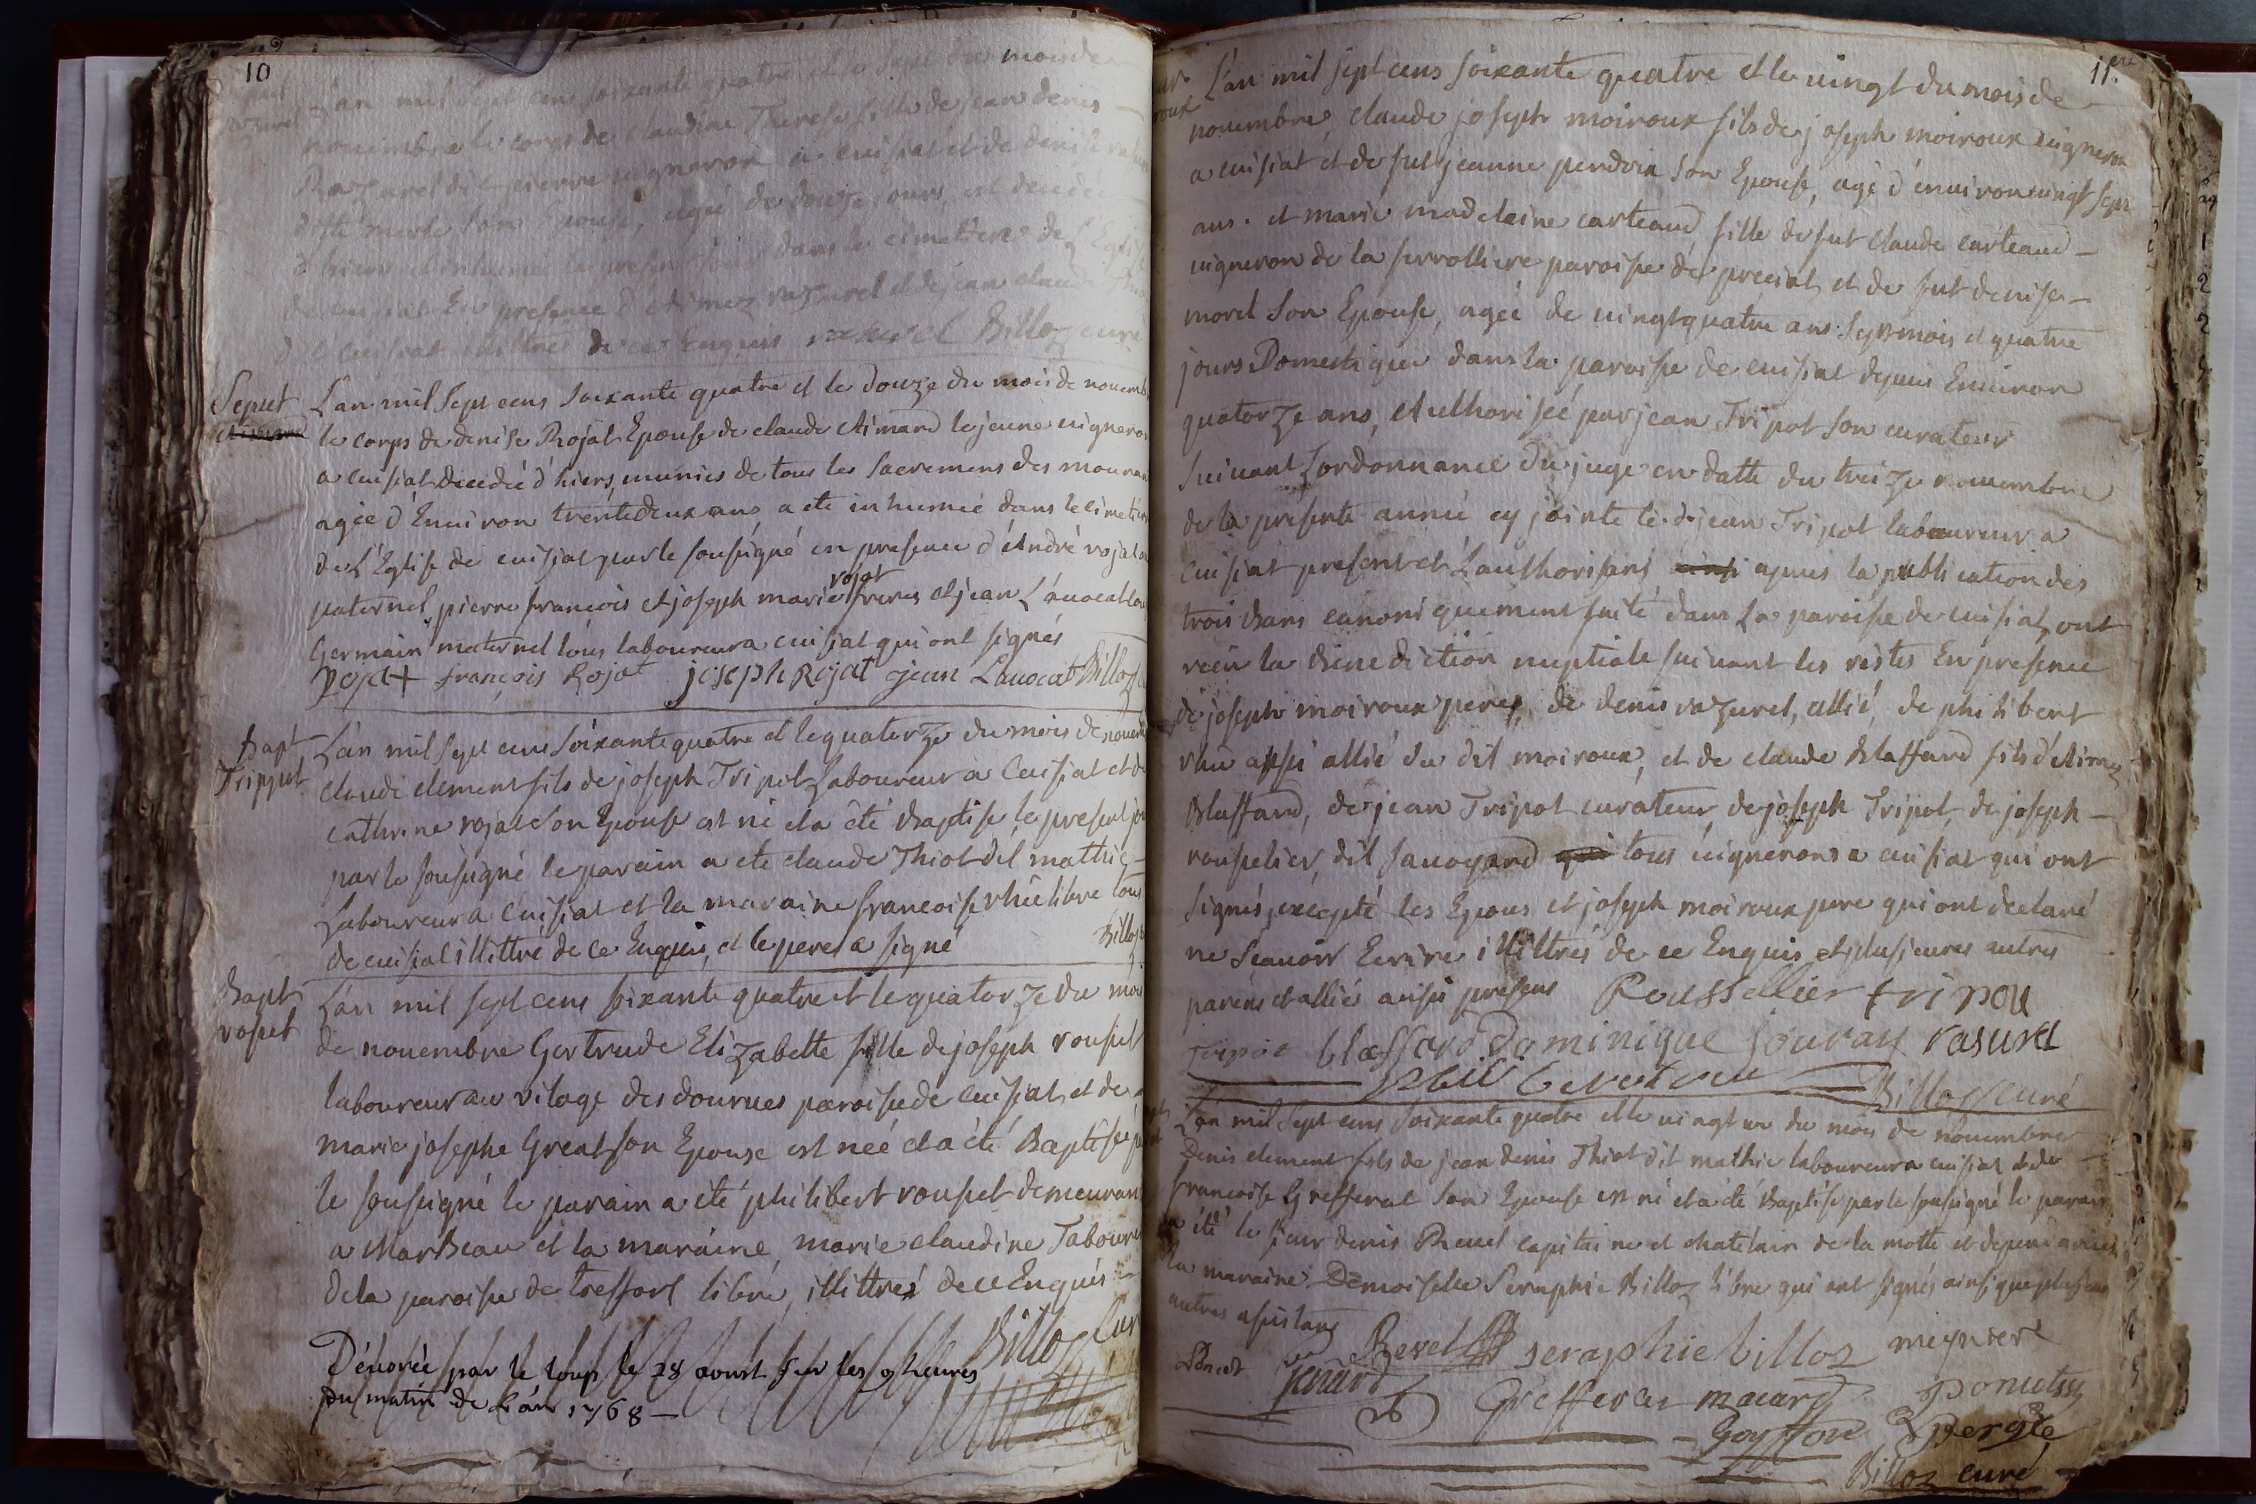 10
L'an mil sept cens soixante quatre et le sept du mois de
novembre le corps de claudine Therese fille de jean denis
Razurel dit pierre vigneron a cuisiat et de denise
ditte merle son Epouse, agée de douze jours, est decedée
d'hiers et inhumée le present jour dans le cimettiere de L'Eglise
de cuisiat En presence d'Aimez razurel et de jean claude
de cuisiat illittré de ce Enquis razurel Billoz curé
Sepult
L'an mil Sept cens Soixante quatre et le douze du mois de novemb
le corps de denise Rojat Epouse de claude Aimard le jeune vigneron
a cuisiat decedée d'hiers, munies de tous les Sacremens des mourans
agée d'Environ trente deux ans, a eté inhumée dans le cimetiere
de L'Eglise de cuisiat par le sousigné en presence d'André rojat
paternel, pierre francois et joseph marie rojat freres et jean L'avocat
Germain maternel tous laboureurs a cuisiat qui ont signés
Rojat françois Rojat joseph Rojat jean Lavocat Billoz
Bapt
Tripput
L'an mil sept cens Soixante quatre et le quatorze du mois de novemb
claude clement fils de joseph Tripot Laboureur a Cuisiat et de
cathrine rojat Son Epouse est né et a été Baptise le present jour
par le sousigné le parain a ete claude Thiot dit mathie
Laboureur a Cuisiat et la maraine francoise rhûe libre tous
de cuisiat illittré de ce Enquis, et le pere a signé Billoz
Bapt
roupet
L'an mil sept cens soixante quatre et le quatorze du mois
de novembre Gertrude Elizabette fille de joseph roupet
laboureur au vilage des dourues paroisse de Cuisiat, et de
marie josephe Great son Epouse est néé et a été Baptisée
le sousigné le parain a été philibert roupet demeurant
a MarBeau et la maraine, marie claudine Tabour
de la paroisse de treffort libre, illittrés de ce Enqués
Billoz Cur
Dévorée par le loup le 28 aoust sur les 9 heures
du matin de L'an 1768 —
11
L'an mil sept cens soixante quatre et le vingt du mois de
novembre, claude joseph moiroux fils de joseph moiroux vigneron
a cuisiat et de fut jeanne perdrix son Epouse, agé d'environ vingt sept
ans. et marie madelaine carteaud, fille de fut claude carteaud
vigneron de la ferrolliere paroisse de preciat, et de fut denise
morel Son Epouse, agée de vingt quatre ans Sept mois et quatre
jours Domestique dans la paroisse de cuisiat depuis Environ
quatorze ans, Authorisée par jean Tripot son curateur
Suivant L'ordonnance du juge en datte du treize novembre
de la presente année cy jointe le d. jean Tripot laboureur a
Cuisiat present et L'authorisant apres la publication des
trois Bans canoniquement faite dans La paroisse de cuisiat, ont
recu la Bénédiction nuptiale suivant les restes En presence
de joseph moiroux pere, de denis razurel, allié, de philibert
rhû aussi allié du dit moiroux, et de claude Blaffard fils d'Aimez
Blaffard, de jean Tripot curateur, de joseph Tripot, de joseph
rouselier, dit savoyard tous vignerons a cuisiat qui ont
Signés, excepté les Epoux et joseph moiroux pere qui ont declaré
ne Scavoir Ecrire illittrés de ce Enquis, et plusieures autres
parens et alliés aussi presens Roussellier tripou
tripot blaffard Dominique jouvray rasurel
Billoz curé
L'an mil Sept cens Soixante quatre et le vingt un du mois de novembre
Denis clement fils de jean denis Thiot dit mathie laboureur a cuisiat et de
francoise Grefferat Son Epouse est né et a été Baptisé par le sousigné le parain
a été le sieur denis Revel capitaine et chatelain de la motte et dependances
La maraine Demoiselle Seraphie Billoz libre qui ont signés ainsi que plusieurs
autres assistans
Revel seraphie billoz meynier
Grefferat macard
Goyffon
Billoz curé